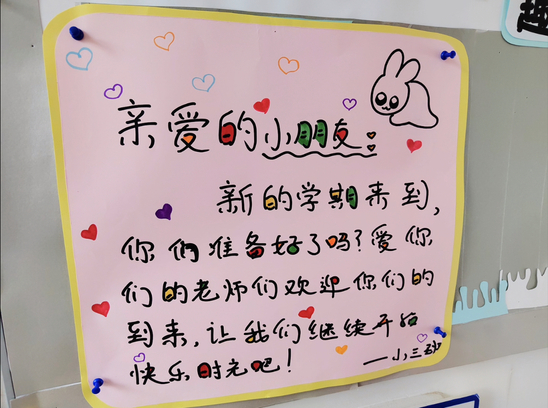 亲爱的小朋友:
新的学期来到,
你们准备好了吗?爱你
们的老师们欢迎你们的
到来,让我们继续开始
快乐时光吧!
——小三班
趣